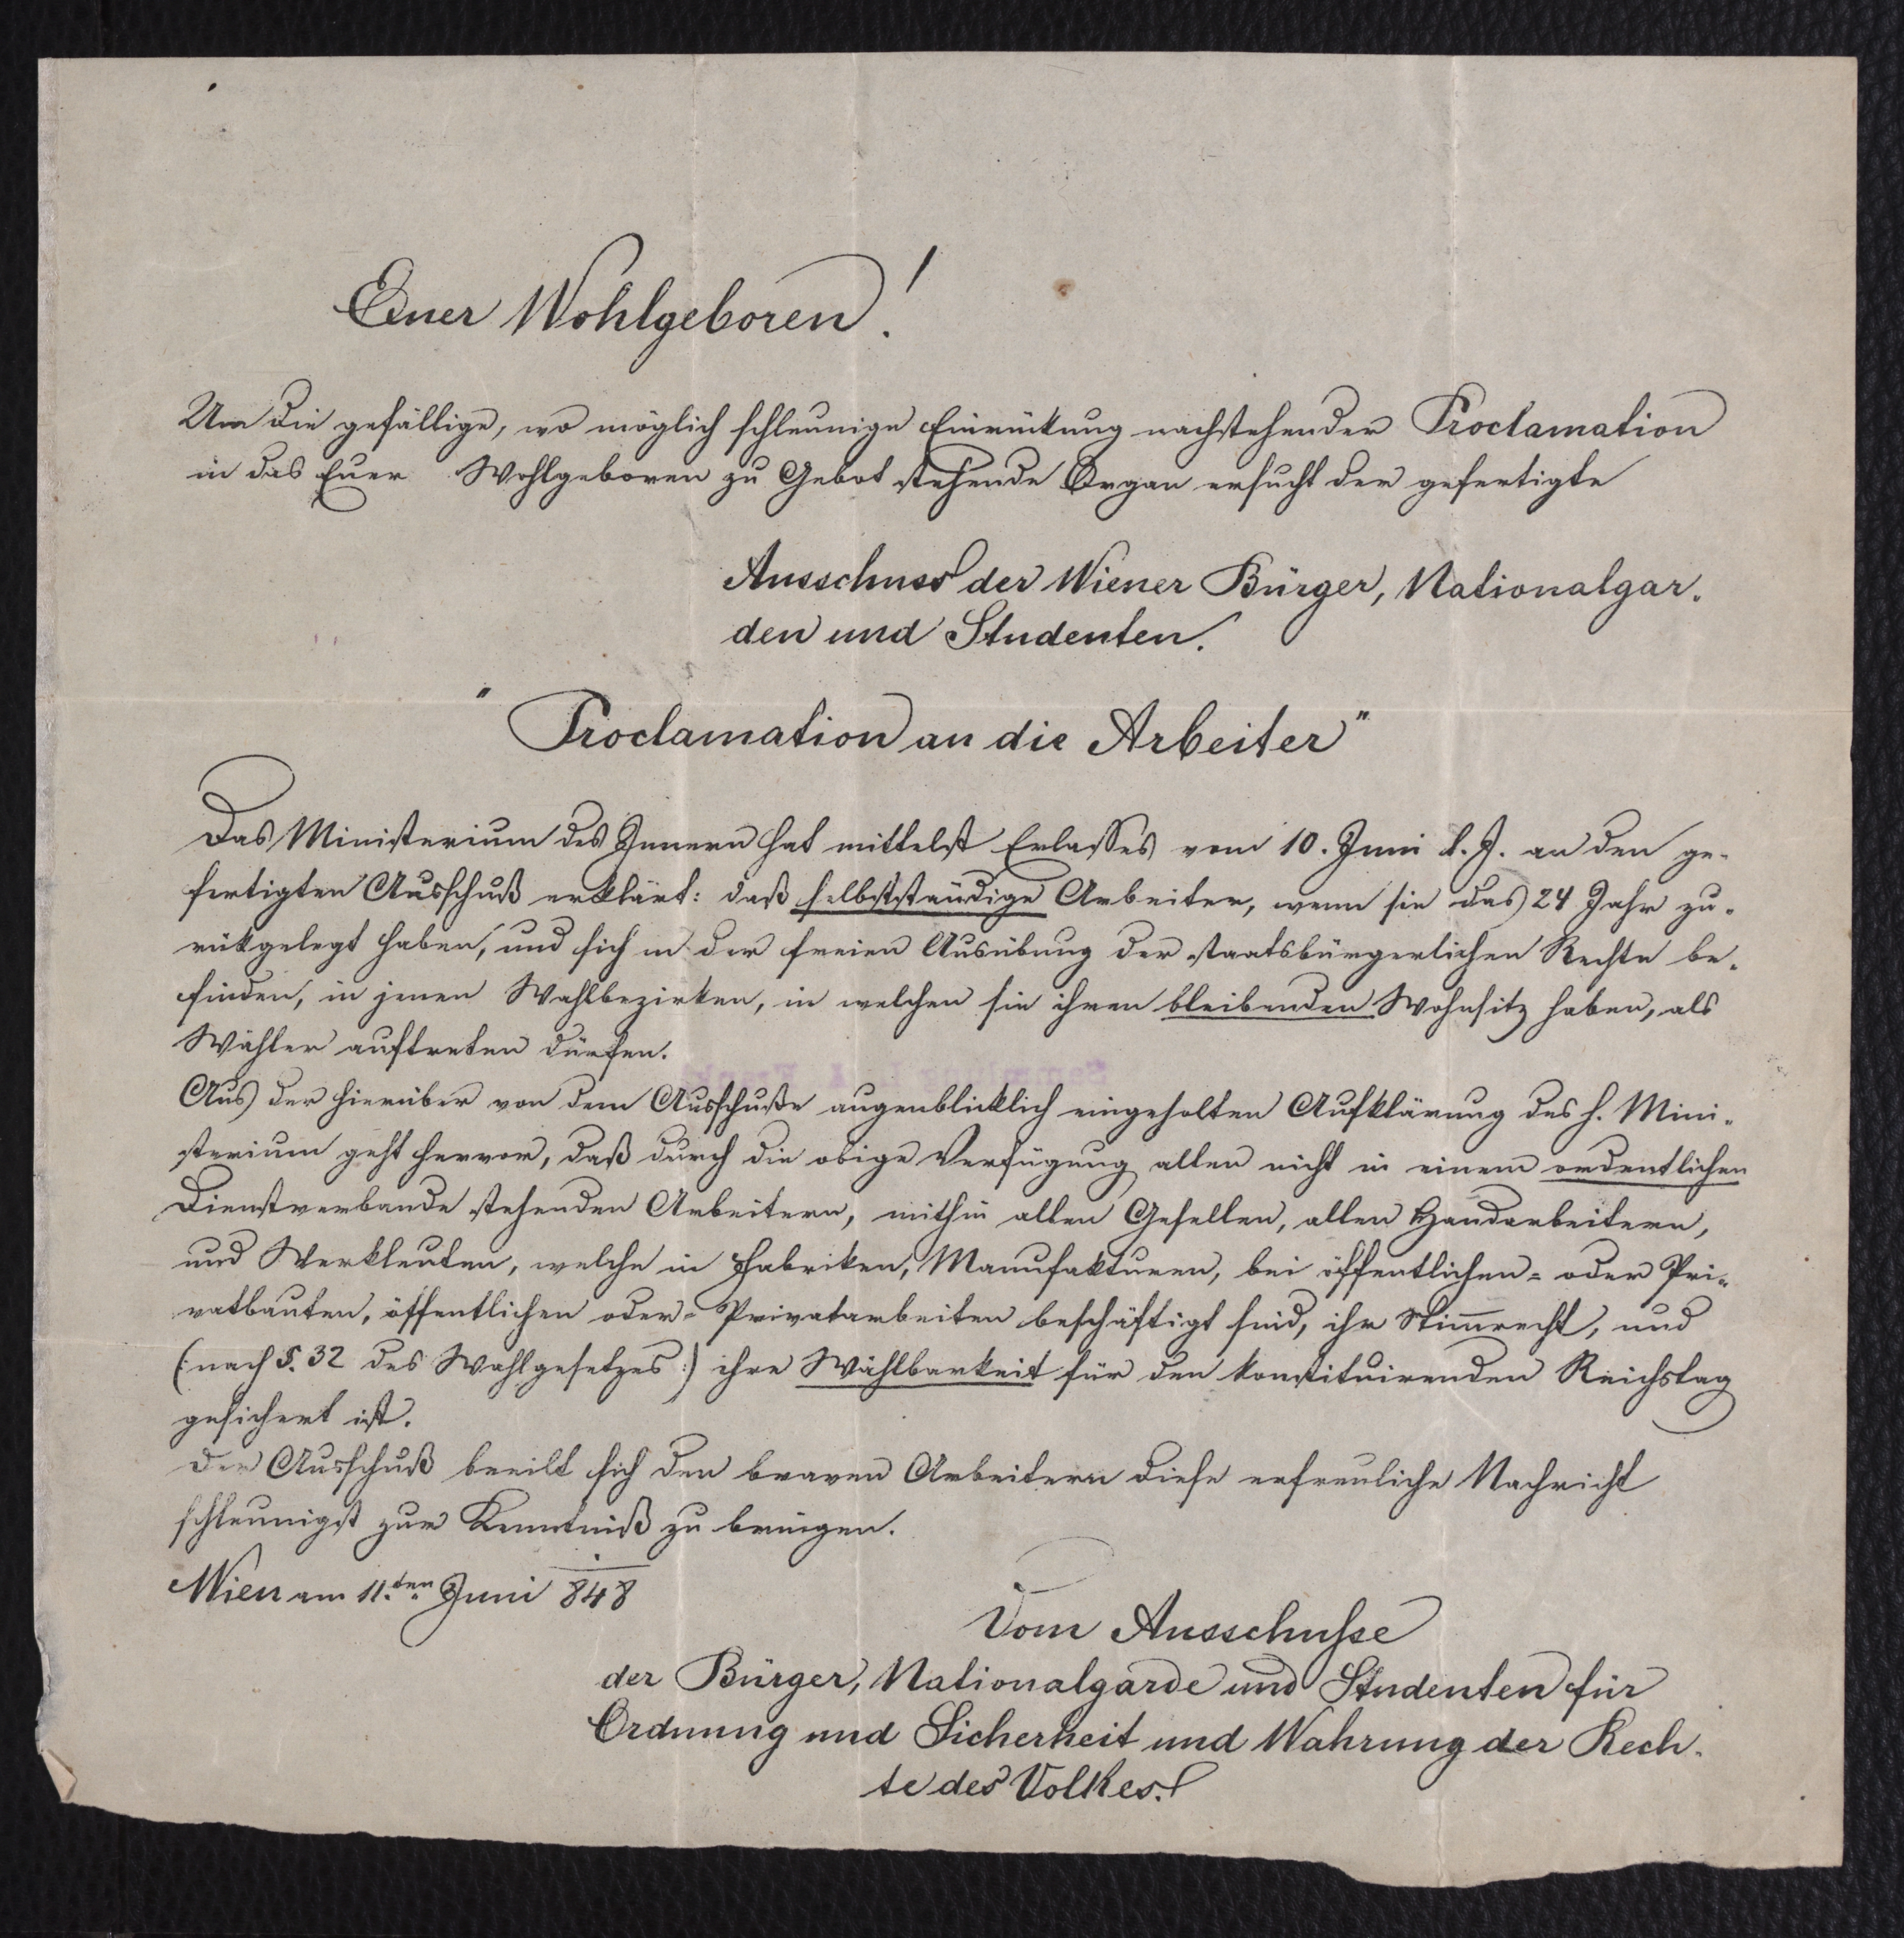 Euer Wohlgeboren!
Um die gefällige, wo möglich schleunige Einrükung nachstehender Proclamation
in das Euer Wohlgeboren zu Gebot stehende Organ ersucht der gefertigte
Ausschuss der Wiener Bürger, Nationalgar-
den und Studenten.
"Proclamation an die Arbeiter"
Das Ministerium des Innern hat mittelst Erlasses vom 10. Juni l. J. an den ge-
fertigten Ausschuß erklärt: daß selbstständige Arbeiter, wenn sie das 24 Jahr zu-
rükgelegt haben, und sich in der freien Ausübung der staatsbürgerlichen Rechte be-
finden, in jenen Wahlbezirken, in welchen sie ihren bleibenden Wohnsitz haben, als
Wähler auftreten dürfen.
Aus der hierüber von dem Ausschuße augenblicklich eingeholten Aufklärung des h. Mini-
sterium geht hervor, daß durch die obige Verfügung allen nicht in einem ordentlichen
Dienstverbande stehenden Arbeitern, mithin allen Gesellen, allen Handarbeitern,
und Werkleuten, welche in Fabriken, Manufakturen, bei öffentlichen- oder Pri-
vatbauten, öffentlichen oder- Privatarbeiten beschäftigt sind, ihr Stim̅recht, und
(: nach §. 32 des Wahlgesetzes :) ihre Wählbarkeit für den konstituirenden Reichstag
gesichert ist.
Der Ausschuß beeilt sich den braven Arbeitern diese erfreuliche Nachricht
schleunigst zur Kenntniß zu bringen.
Wien am 11.ten Juni 848
Vom Ausschuße
der Bürger, Nationalgarde und Studenten für
Ordnung und Sicherheit und Wahrung der Rech-
te des Volkes.